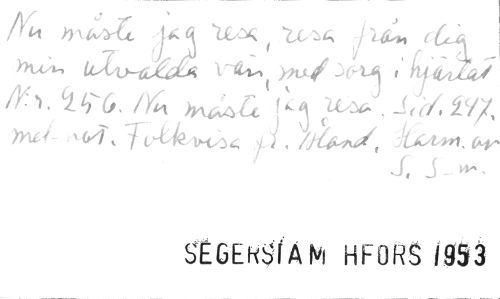 Nu måste jag resa, resa från dig
min utvalda vän, med sorg i hjärtat
N:r. 256. Nu måste jag resa. Sid. 247.
mel-not. Folkvisa fr. Åland. Harm. av
S. S-m.
SEGERSTAM HFORS 1953